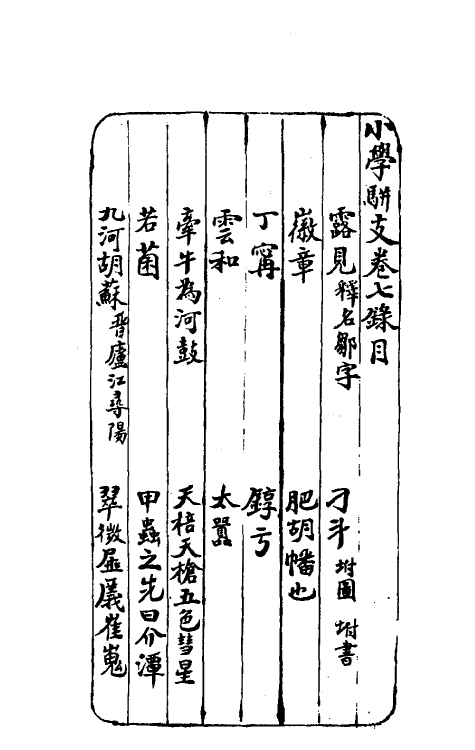 小學駢支卷七錄目
露見 釋名鄒字 刁斗 坿圖 坿書
徽章 肥胡幡也
丁寧 錞亏
雲和 太嚣
牽牛為河鼓 天棓天槍五色彗星
若菌 甲蟲之先曰介潭
九河胡蘇 晋廬江尋陽 翠微厜㕒崔嵬